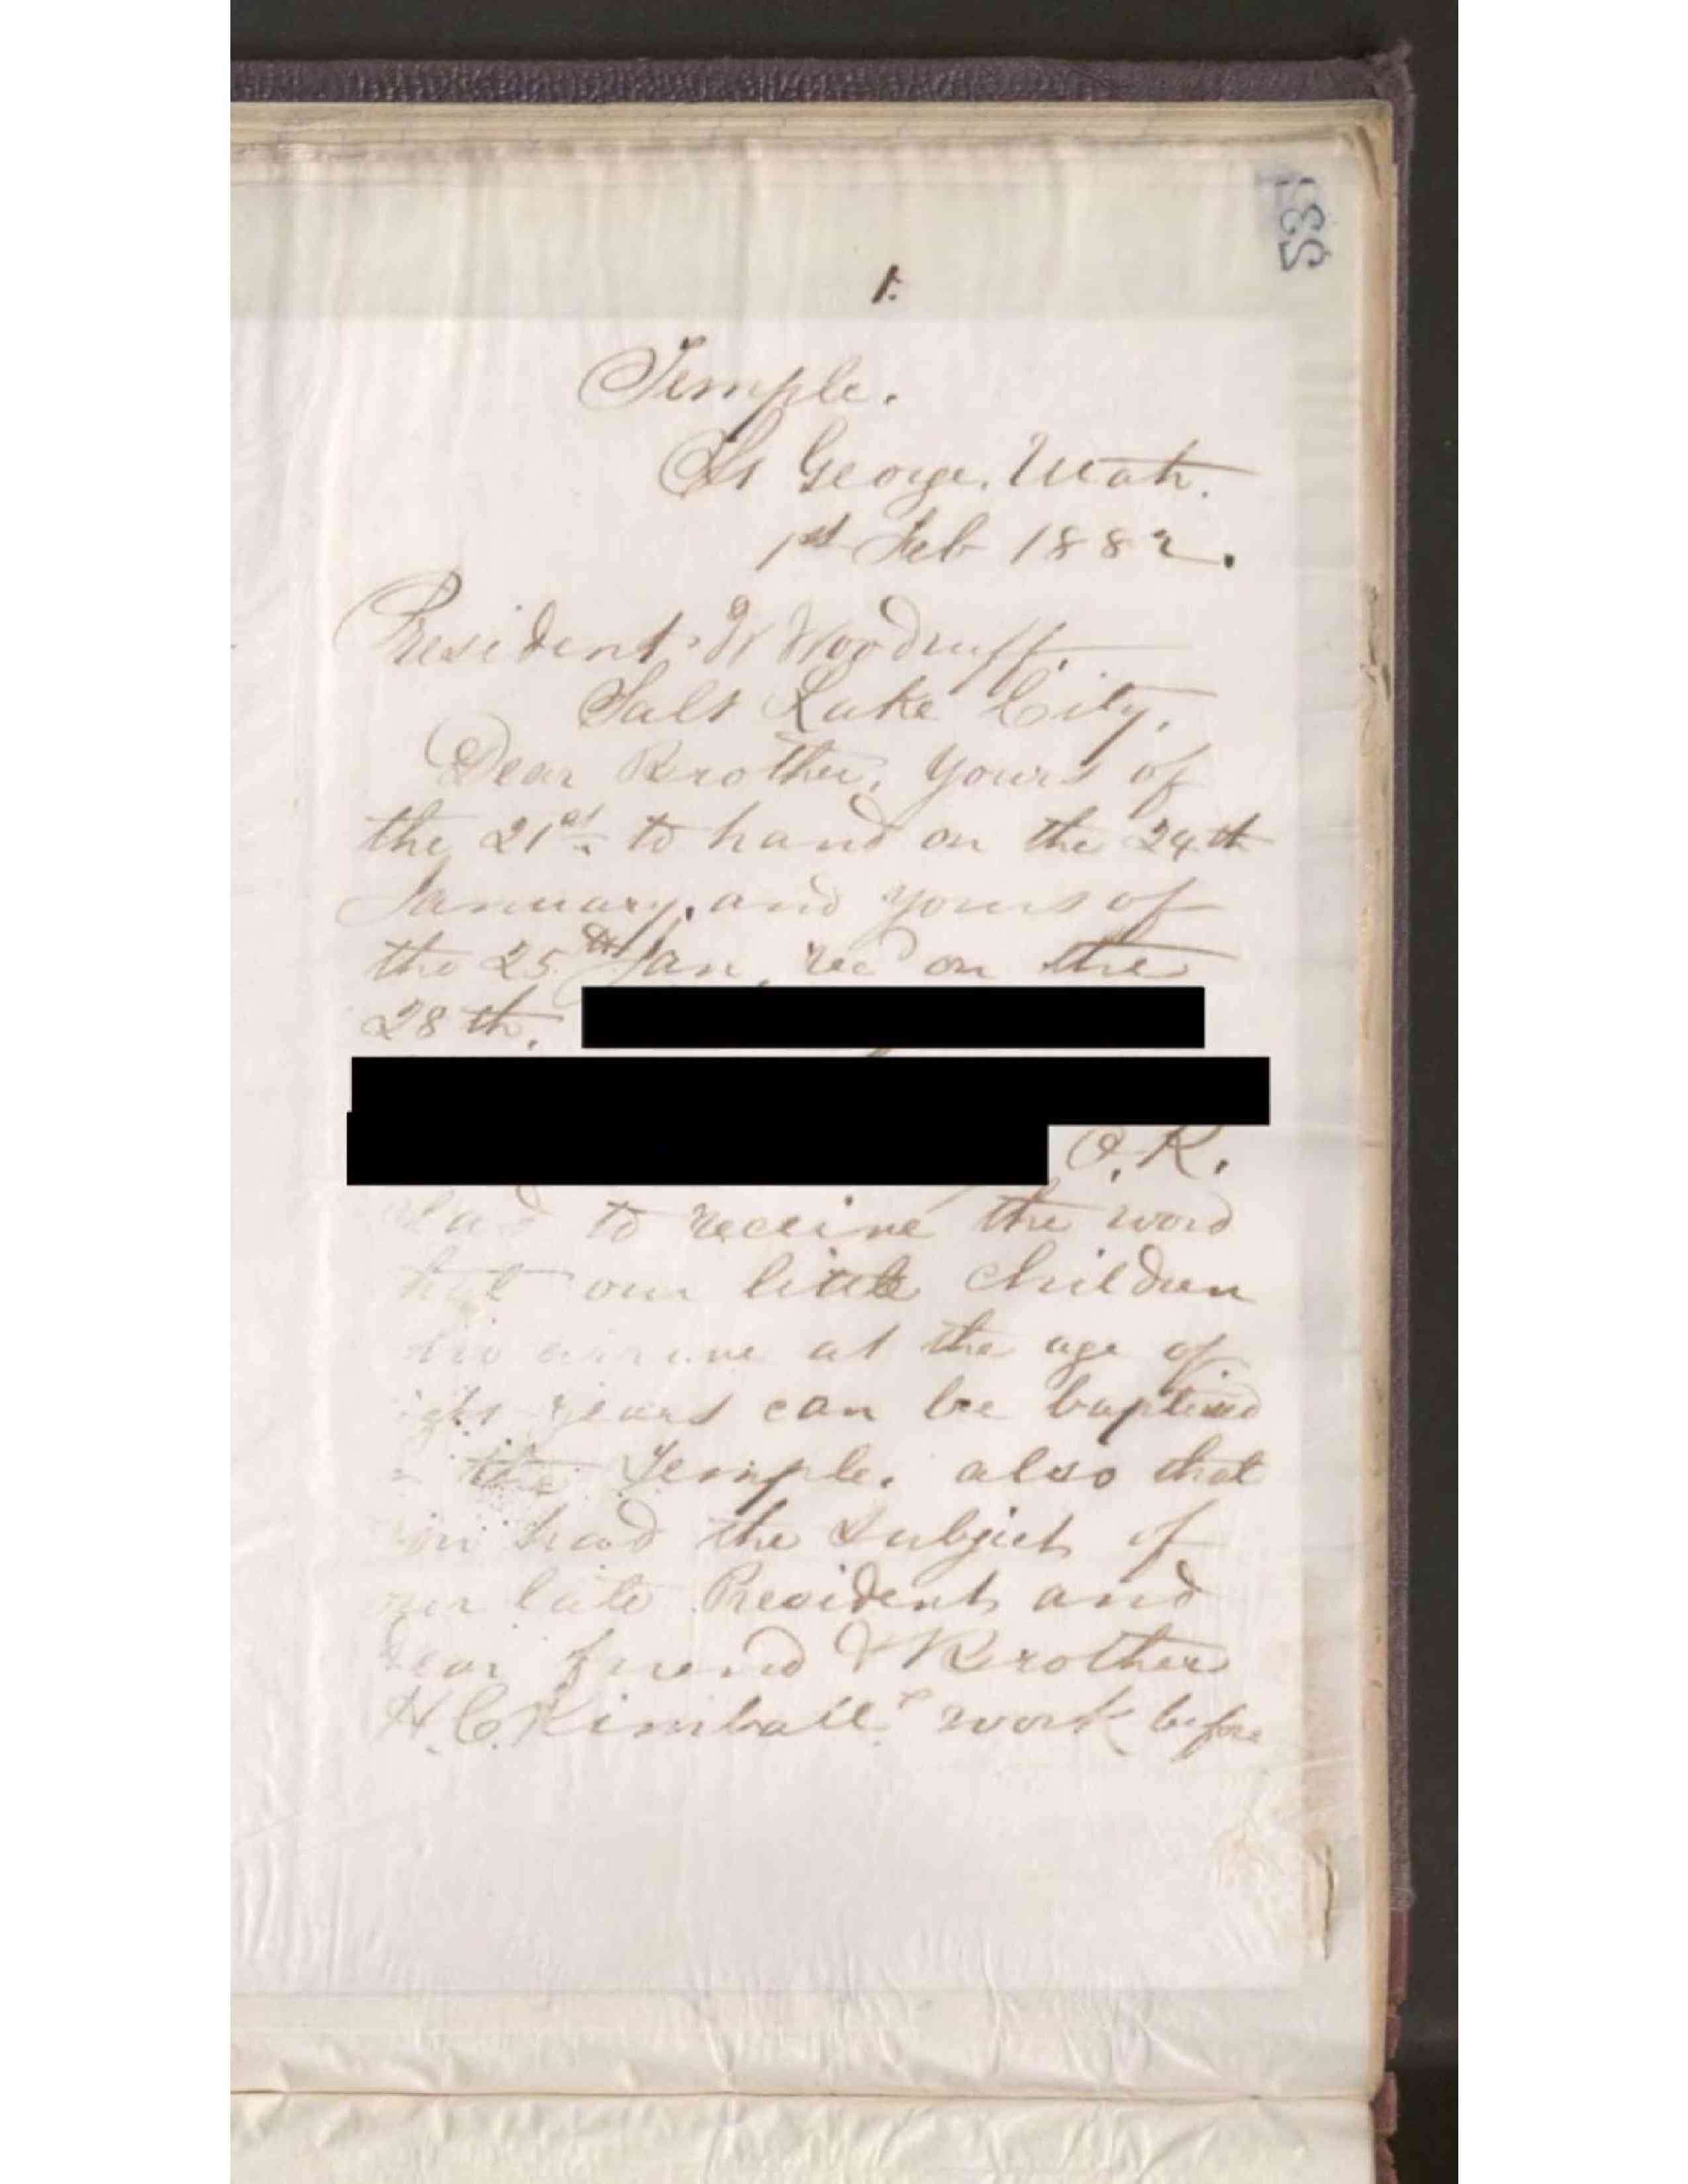 1.
Temple.
St George. Utah.
1st Feb 1882.
President W Woodruff.
Salt Lake City.
Dear Brother, Yours of
the 21st. to hand on the 24th
January, and yours of
the 25th Jan, recd on the
28th.
O.K.
glad to receive the word
that our little children
who arrive at the age of
ights years can be baptised
the Temple. also that
had the subject of
our late President and
dear friend & Brother
H. C. Kimballs work before